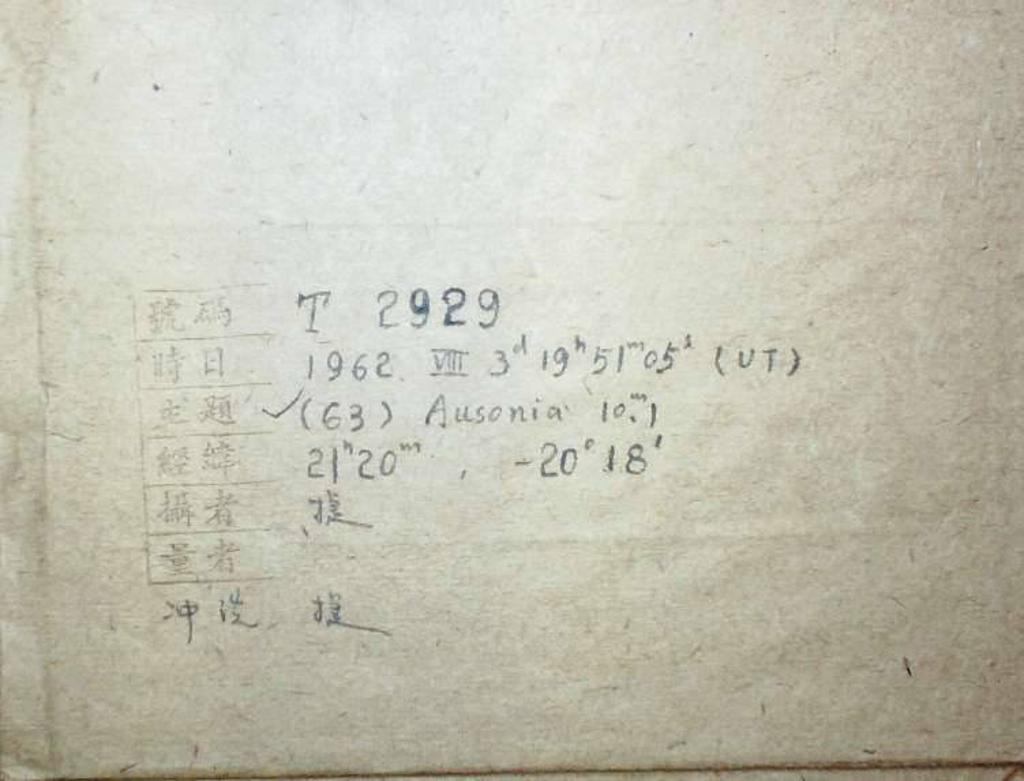 號碼 T 2929
時日 1962. VIII 3ᵈ 19ʰ 51ᵐ 05ˢ (UT)
主題 ✓(63) Ausonia 10ᵐ.1
經緯 21ʰ20ᵐ , -20°18′
攝者
量者
冲洗